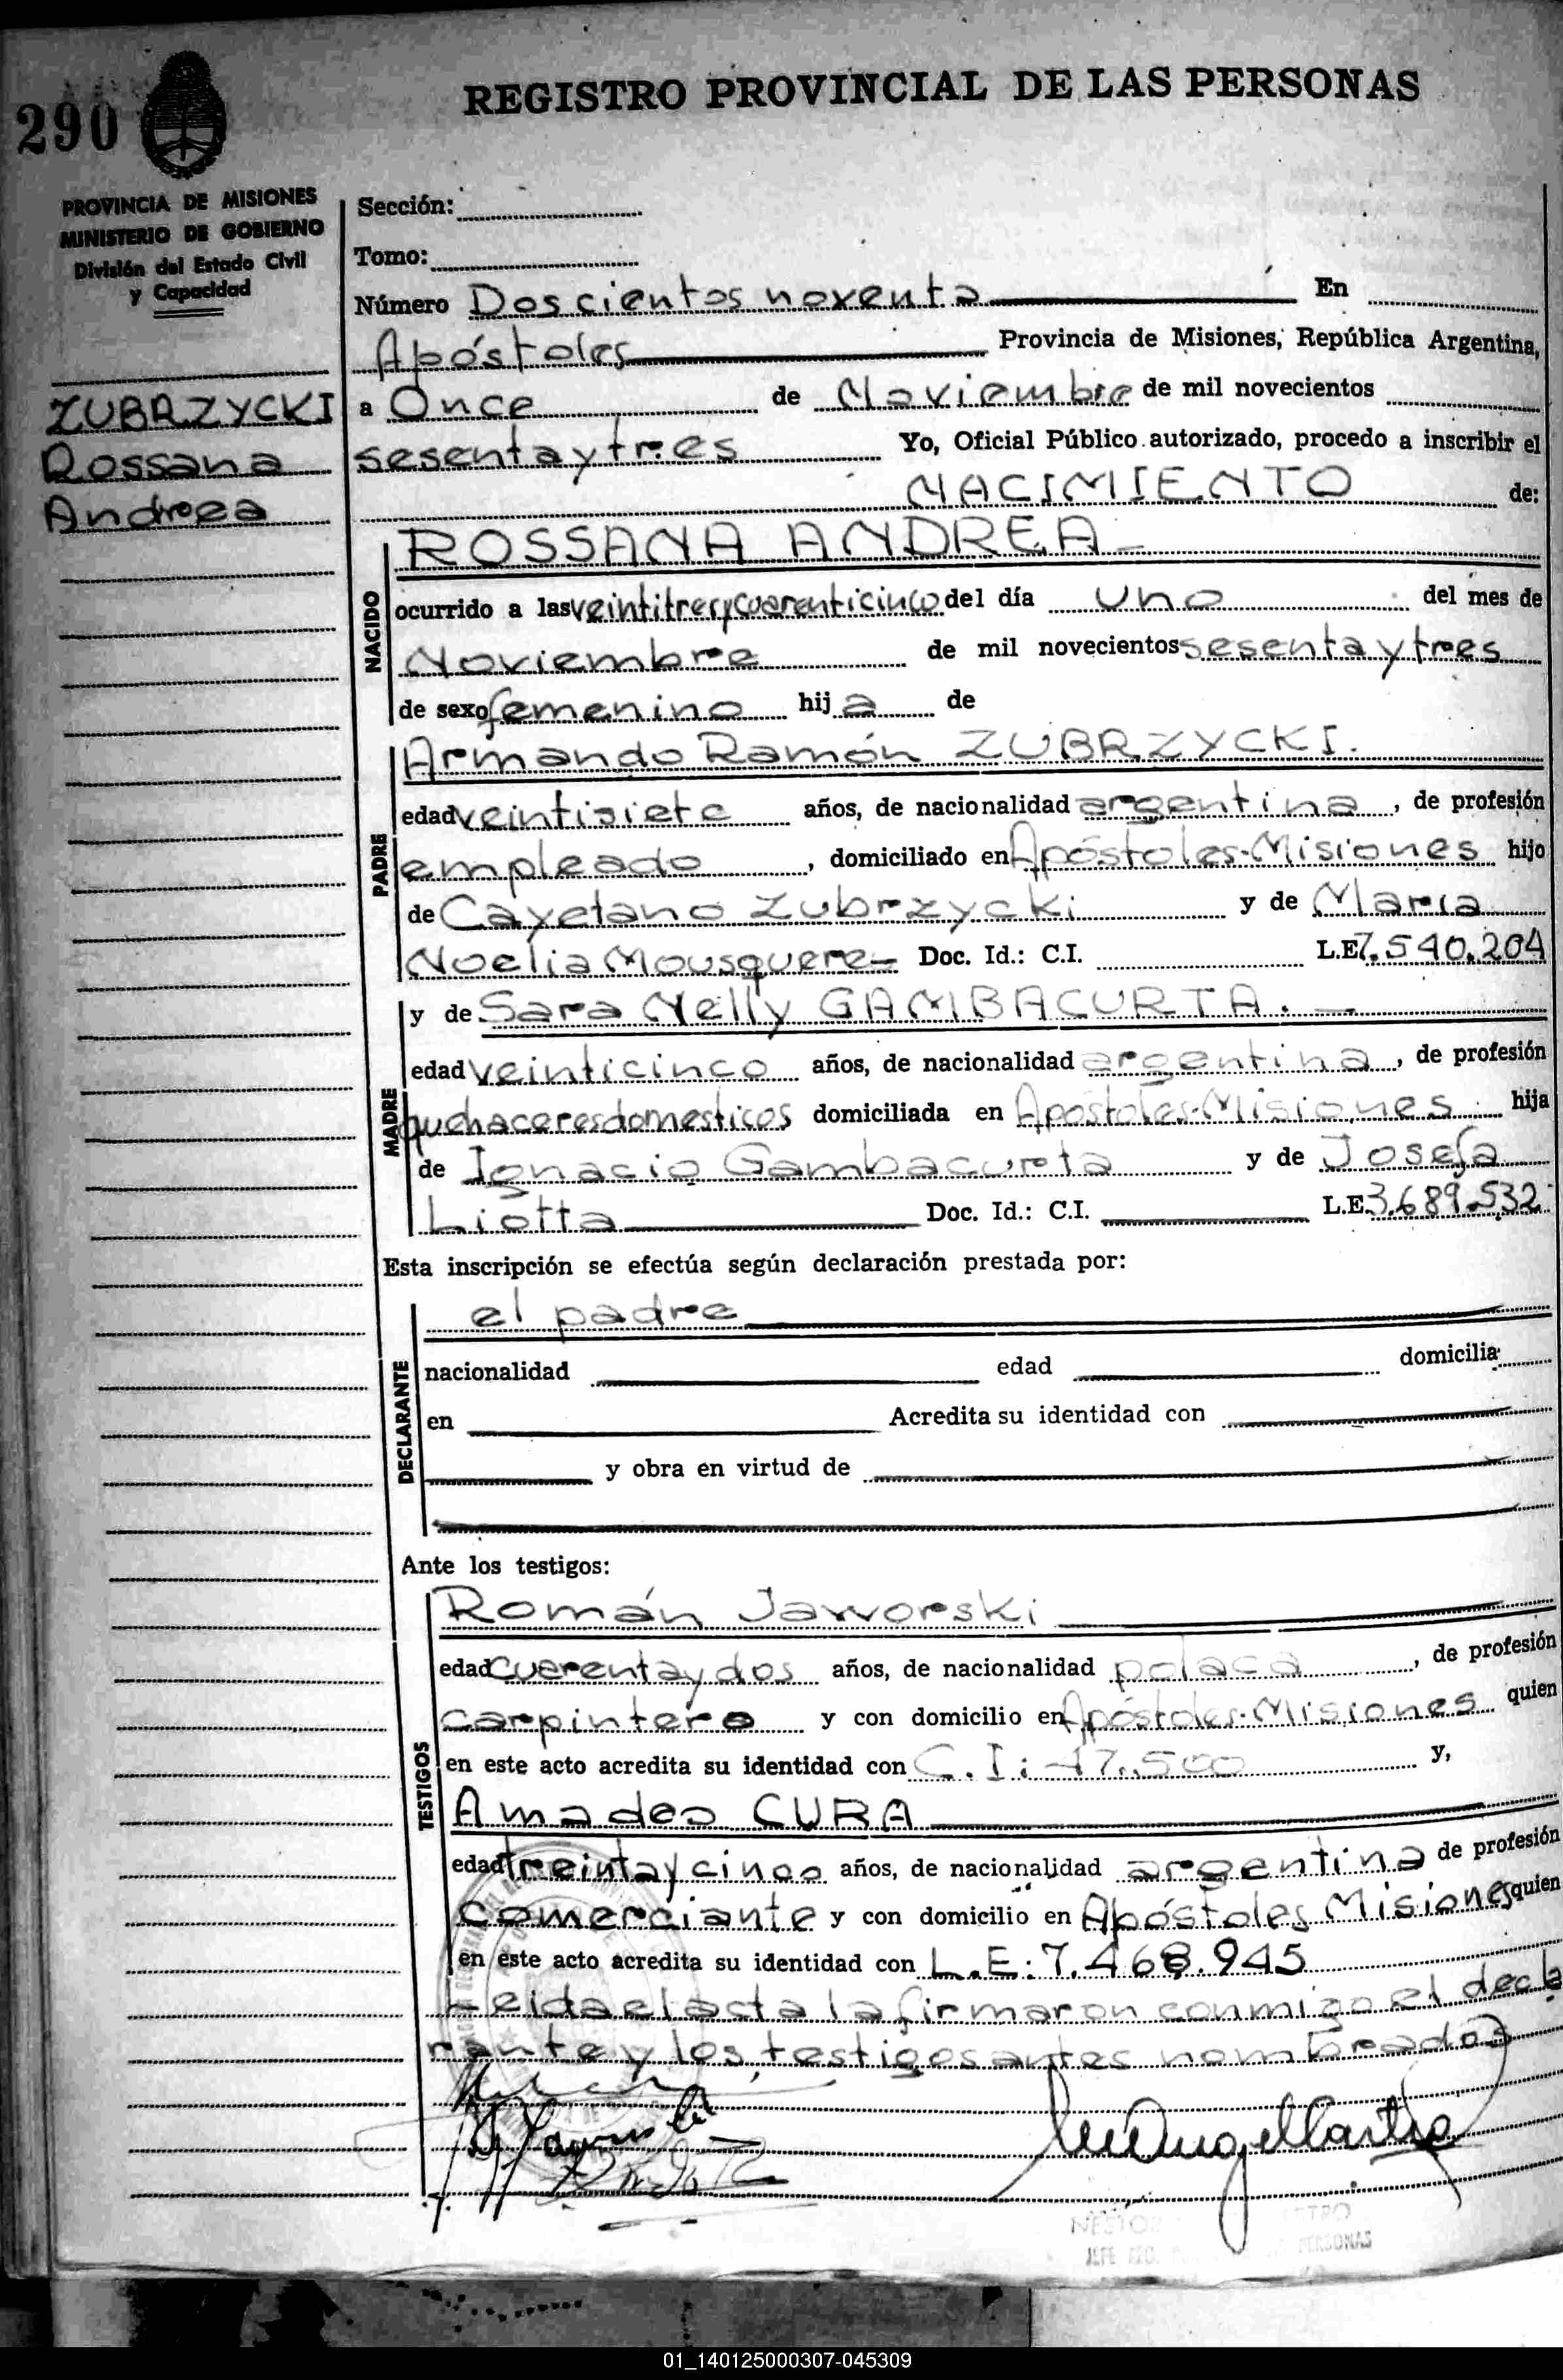 290
REGISTRO PROVINCIAL DE LAS PERSONAS
PROVINCIA DE MISIONES
MINISTERIO DE GOBIERNO
División del Estado Civil
y Capacidad
ZUBRZYCKI
Rossana
Andrea
Sección:
Tomo:
Número Doscientos noventa En
Apóstoles Provincia de Misiones, República Argentina,
a Once de Noviembre de mil novecientos
sesenta y tres Yo, Oficial Público autorizado, procedo a inscribir el
NACIMIENTO de:
NACIDO
ROSSANA ANDREA
ocurrido a las veintitres y cuarenticinco del día uno del mes de
Noviembre de mil novecientos sesenta y tres
de sexo femenino hija de
PADRE
Armando Ramón ZUBRZYCKI.
edad veintisiete años, de nacionalidad argentina, de profesión
empleado, domiciliado en Apóstoles-Misiones hijo
de Cayetano Zubrzycki y de María
Noelia Mousquere- Doc. Id.: C.I. L.E 7.540.204
MADRE
y de Sara Nelly GAMBACURTA.
edad veinticinco años, de nacionalidad argentina, de profesión
quehaceres domesticos domiciliada en Apostoles-Misiones hija
de Ignacio Gambacurta y de Josefa
Liotta Doc. Id.: C.I. L.E. 3.689.532
Esta inscripción se efectúa según declaración prestada por:
DECLARANTE
el padre
nacionalidad edad domicilia
en Acredita su identidad con
y obra en virtud de
Ante los testigos:
TESTIGOS
Román Jaworski
edad cuarenta y dos años, de nacionalidad polaca, de profesión
carpintero y con domicilio en Apóstoles-Misiones quien
en este acto acredita su identidad con C.I: 17.500 y,
Amadeo CURA
edad treinta y cinco años, de nacionalidad argentina de profesión
comerciante y con domicilio en Apóstoles Misiones quien
en este acto acredita su identidad con L.E: 7.468.945
Leida el acta la firmaron conmigo el decla
rante y los testigos antes nombrados
NESTOR
JEFE
PERSONAS
01_140125000307-045309